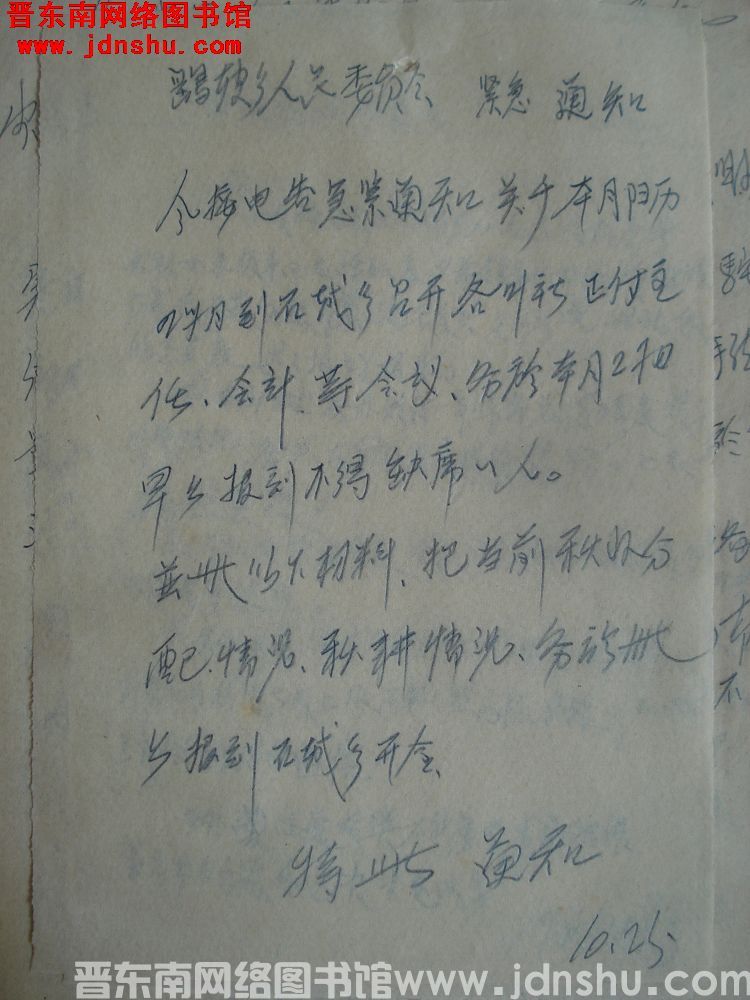 晋东南网络图书馆
www.jdnshu.com
乡人民委员会 紧急 通知
今接电告急紧通知关于本月阳历
到石城乡召开各 社正付主
任、会计、等会议、务於本月27日
早 报到不得缺席 人。
并 以下材料、把当前秋收分
配情况、秋耕情况、务於
报到石城乡开会
特此 通知
10.25.
晋东南网络图书馆www.jdnshu.com